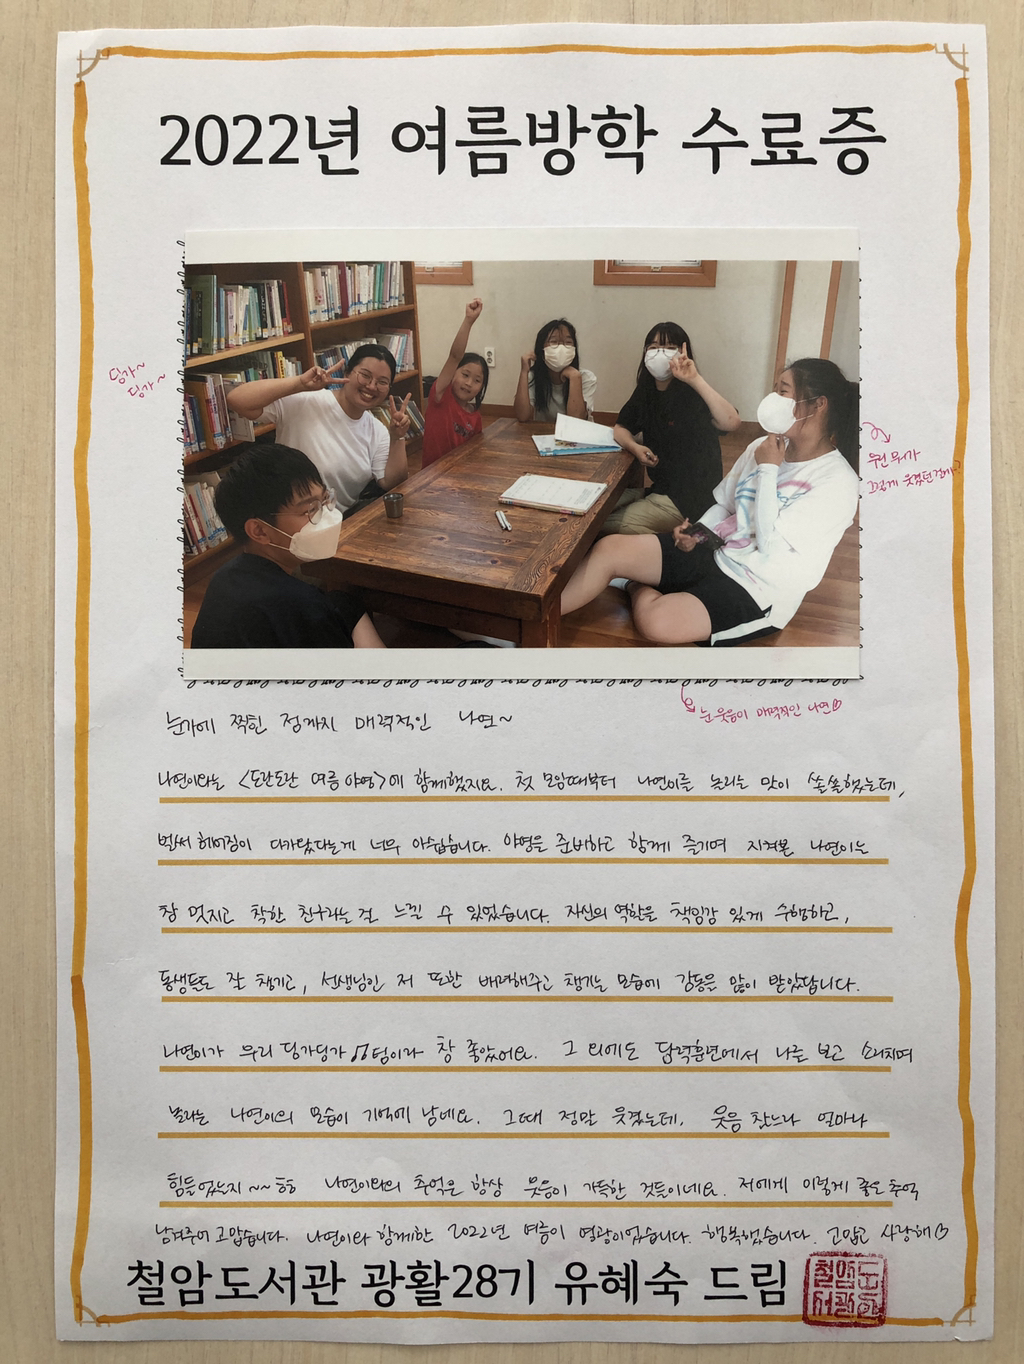 2022년 여름방학 수료증
딩가~
딩가~
무언 뭐가
그렇게 웃겼던걸까?
눈웃음이 매력적인 나연♡
눈가에 찍힌 점까지 매력적인 나연~
나연이와는 <도란도란 여름야영>에 함께했지요. 첫 모임때부터 나연이를 놀리는 맛이 쏠쏠했는데,
벌써 헤어짐이 다가왔다는게 너무 아쉽습니다. 야영을 준비하고 함께 즐기며 지켜본 나연이는
참 멋지고 착한 친구라는 걸 느낄 수 있었습니다. 자신의 역할을 책임감 있게 수행하고,
동생들도 잘 챙기고, 선생님인 저 또한 배려해주고 챙기는 모습에 감동을 많이 받았답니다.
나연이가 우리 딩가딩가♫팀이라 참 좋았어요. 그 외에도 담력훈련에서 나를 보고 소리치며
놀라는 나연이의 모습이 기억에 남네요. 그때 정말 웃겼는데. 웃음 참느라 얼마나
힘들었는지~~ㅎㅎ 나연이와의 추억은 항상 웃음이 가득한 것들이네요. 저에게 이렇게 좋은 추억
남겨주어 고맙습니다. 나연이와 함께한 2022년 여름이 영광이었습니다. 행복했습니다. 고맙고 사랑해♡
철암도서관 광활28기 유혜숙 드림
철암도
서관인